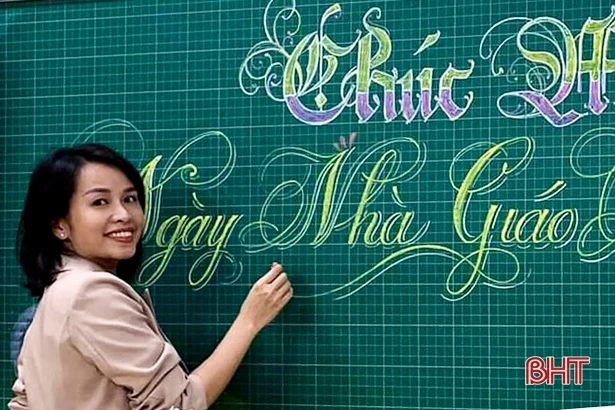 Chúc M
Ngày Nhà Giáo
BHT